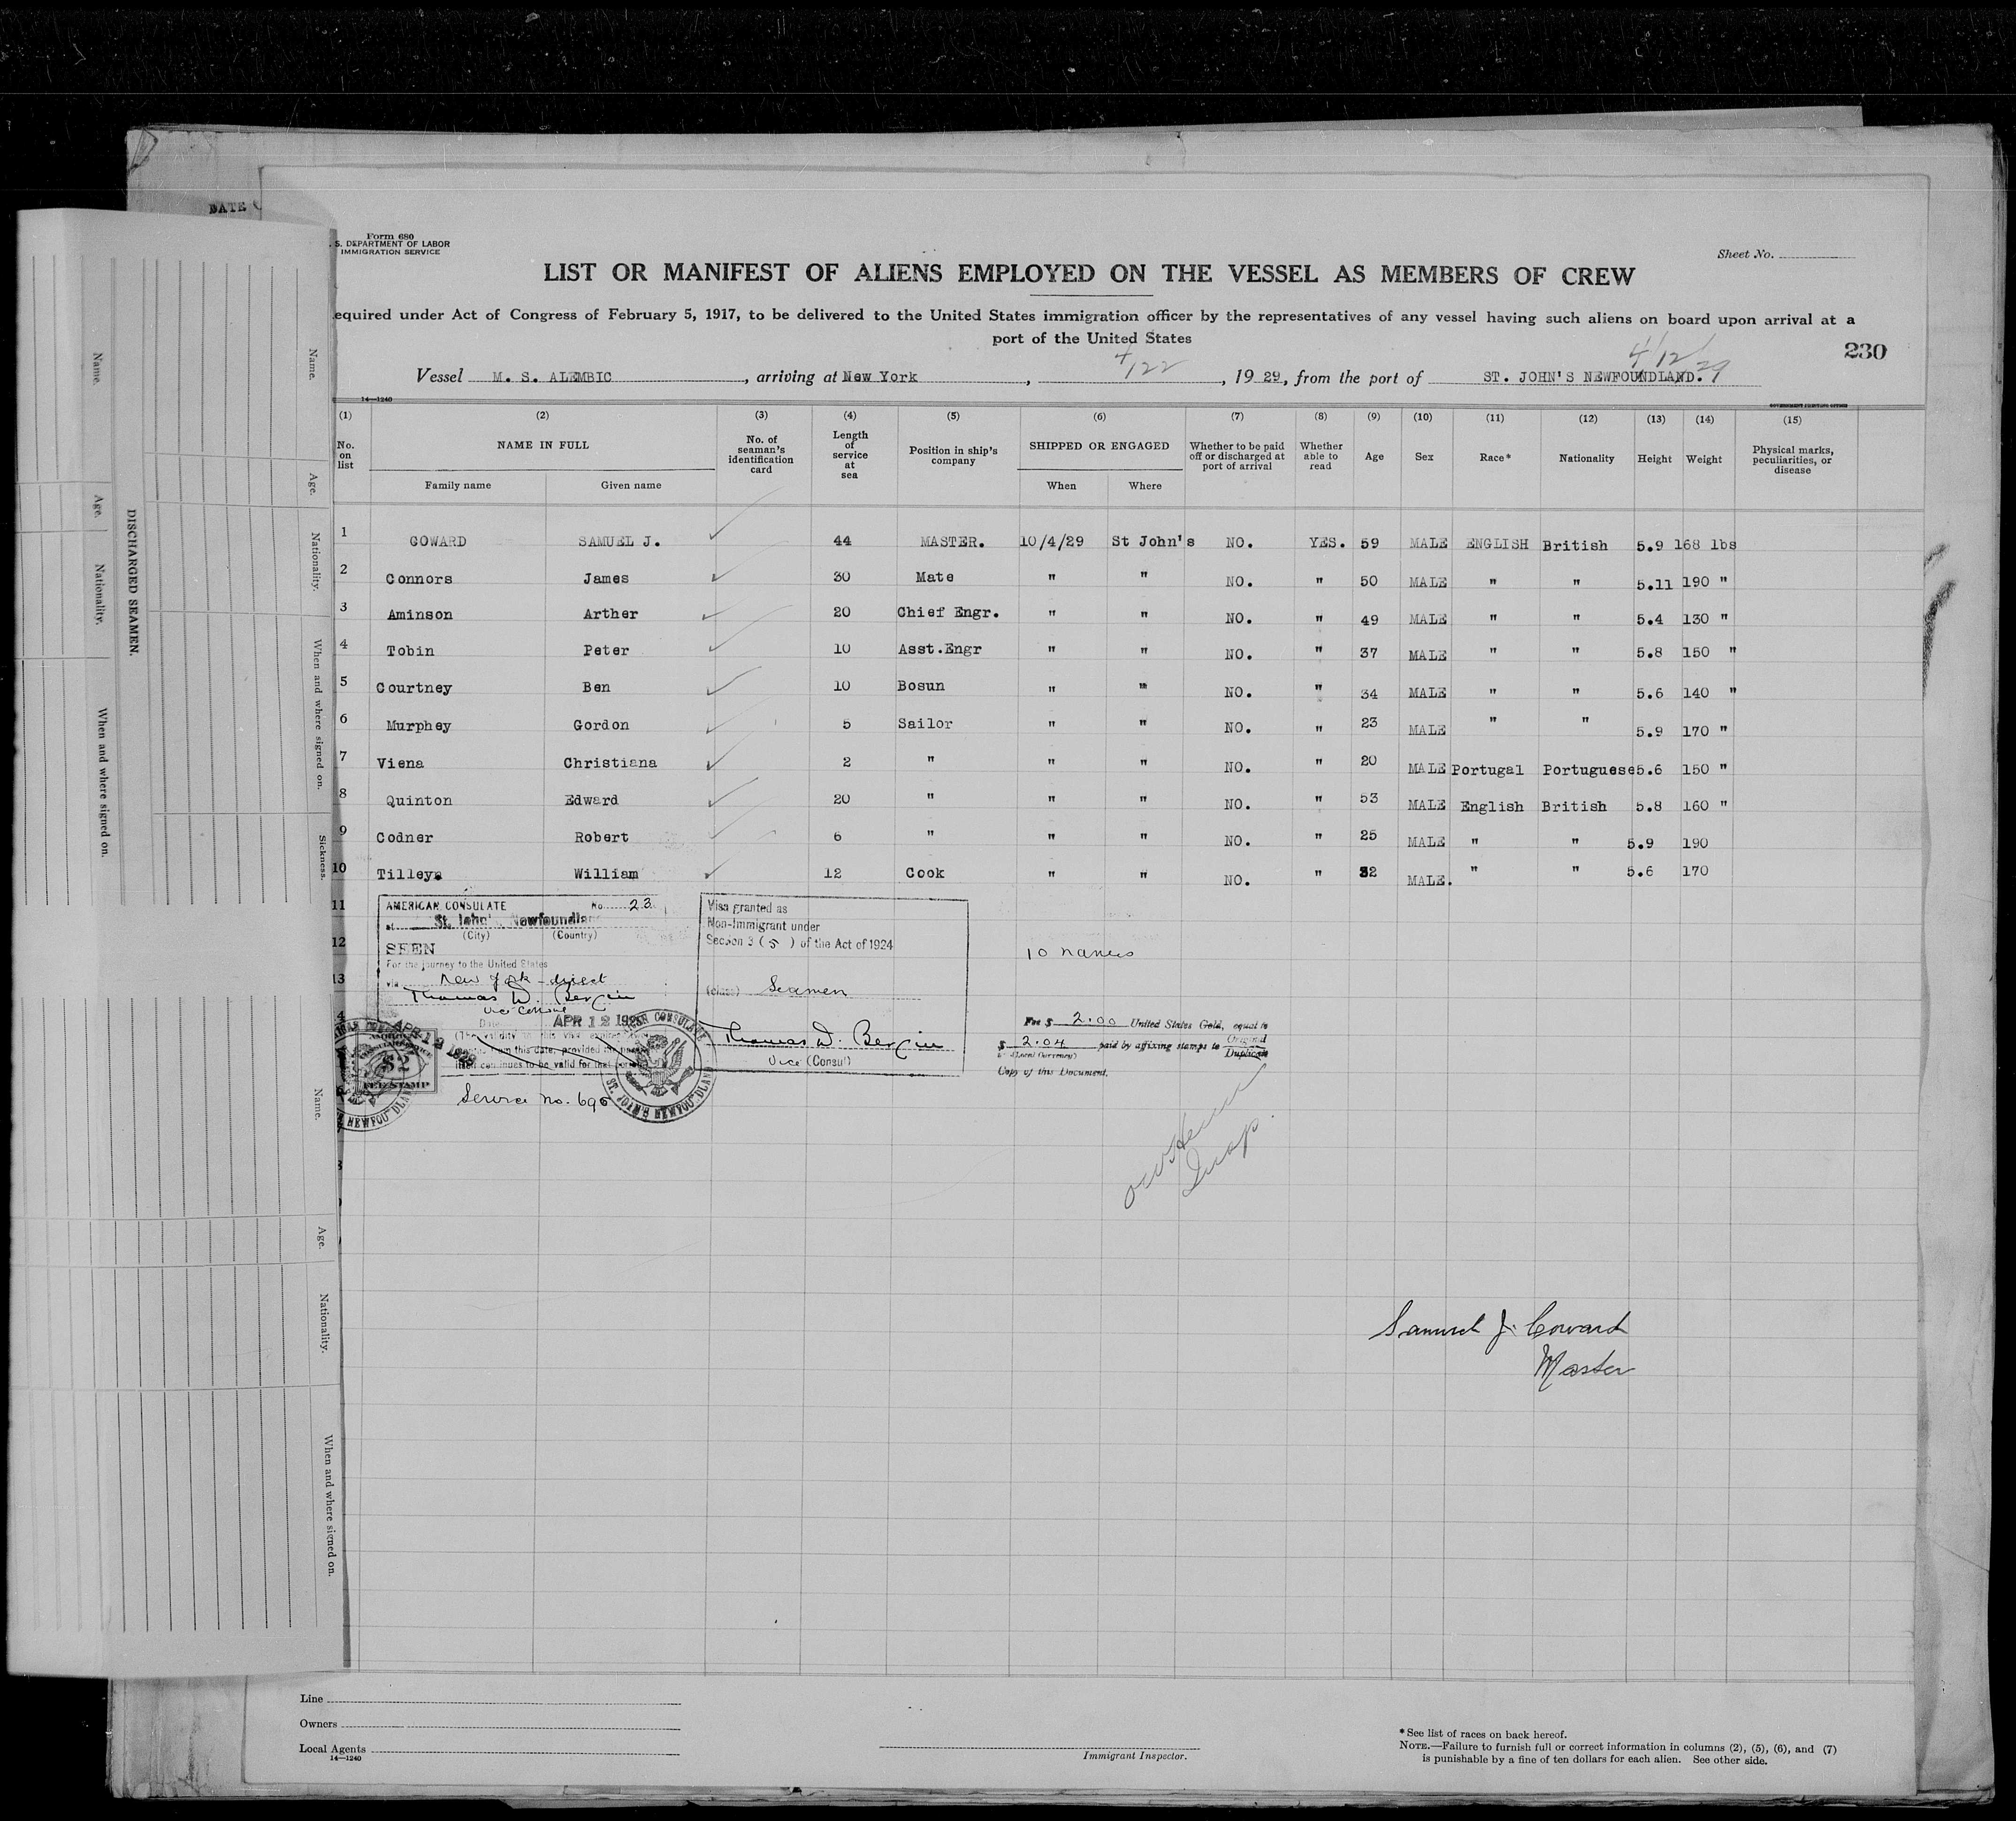 DATE
Form 680
S. DEPARTMENT OF LABOR
IMMIGRATION SERVICE
Sheet No.
LIST OR MANIFEST OF ALIENS EMPLOYED ON THE VESSEL AS MEMBERS OF CREW
equired under Act of Congress of February 5, 1917, to be delivered to the United States immigration officer by the representatives of any vessel having such aliens on board upon arrival at a
port of the United States
230
4/22 4/12/29
Vessel M. S. ALEMBIC, arriving at New York, , 1929, from the port of ST. JOHN'S NEWFOUNDLAND.
14—1240 GOVERNMENT PRINTING OFFICE
(1) (2) (3) (4) (5) (6) (7) (8) (9) (10) (11) (12) (13) (14) (15)
No. on list NAME IN FULL No. of seaman's identification card Length of service at sea Position in ship's company SHIPPED OR ENGAGED Whether to be paid off or discharged at port of arrival Whether able to read Age Sex Race* Nationality Height Weight Physical marks, peculiarities, or disease
Family name Given name When Where
1 COWARD SAMUEL J. 44 MASTER. 10/4/29 St John's NO. YES. 59 MALE ENGLISH British 5.9 168 lbs
2 Connors James 30 Mate " " NO. " 50 MALE " " 5.11 190 "
3 Aminson Arther 20 Chief Engr. " " NO. " 49 MALE " " 5.4 130 "
4 Tobin Peter 10 Asst.Engr " " NO. " 37 MALE " " 5.8 150 "
5 Courtney Ben 10 Bosun " " NO. " 34 MALE " " 5.6 140 "
6 Murphey Gordon 5 Sailor " " NO. " 23 MALE " " 5.9 170 "
7 Viena Christiana 2 " " " NO. " 20 MALE Portugal Portuguese 5.6 150 "
8 Quinton Edward 20 " " " NO. " 53 MALE English British 5.8 160 "
9 Codner Robert 6 " " " NO. " 25 MALE " " 5.9 190
10 Tilleys William 12 Cook " " NO. " 32 MALE. " " 5.6 170
11
12
13
AMERICAN CONSULATE No. 23
at St. John's, Newfoundland
(City) (Country)
SEEN
For the journey to the United States
via New York - direct
Thomas D. Bergin
Vice Consul
Date APR 12 1929
(The validity of this visa expires
from this date, provided the
continues to be valid for that period
Service No. 690
APR 12 1929
FEE STAMP
AMERICAN CONSULATE
ST. JOHN'S NEWFOUNDLAND
Visa granted as
Non-Immigrant under
Section 3 (5) of the Act of 1924
(class) Seamen
Thomas D. Bergin
Vice (Consul)
10 names
Fee $ 2.00 United States Gold, equal to
$ 2.04 paid by affixing stamps to Original
(Local Currency) Duplicate
Copy of this Document.
Insp.
Samuel J. Coward
Master
Line
Owners
Local Agents
14—1240
Immigrant Inspector.
*See list of races on back hereof.
NOTE.—Failure to furnish full or correct information in columns (2), (5), (6), and (7)
is punishable by a fine of ten dollars for each alien. See other side.
DISCHARGED SEAMEN.
Name. Age. Nationality. When and where signed on.
Name. Age. Nationality. When and where signed on. Sickness.
Name. Age. Nationality. When and where signed on.